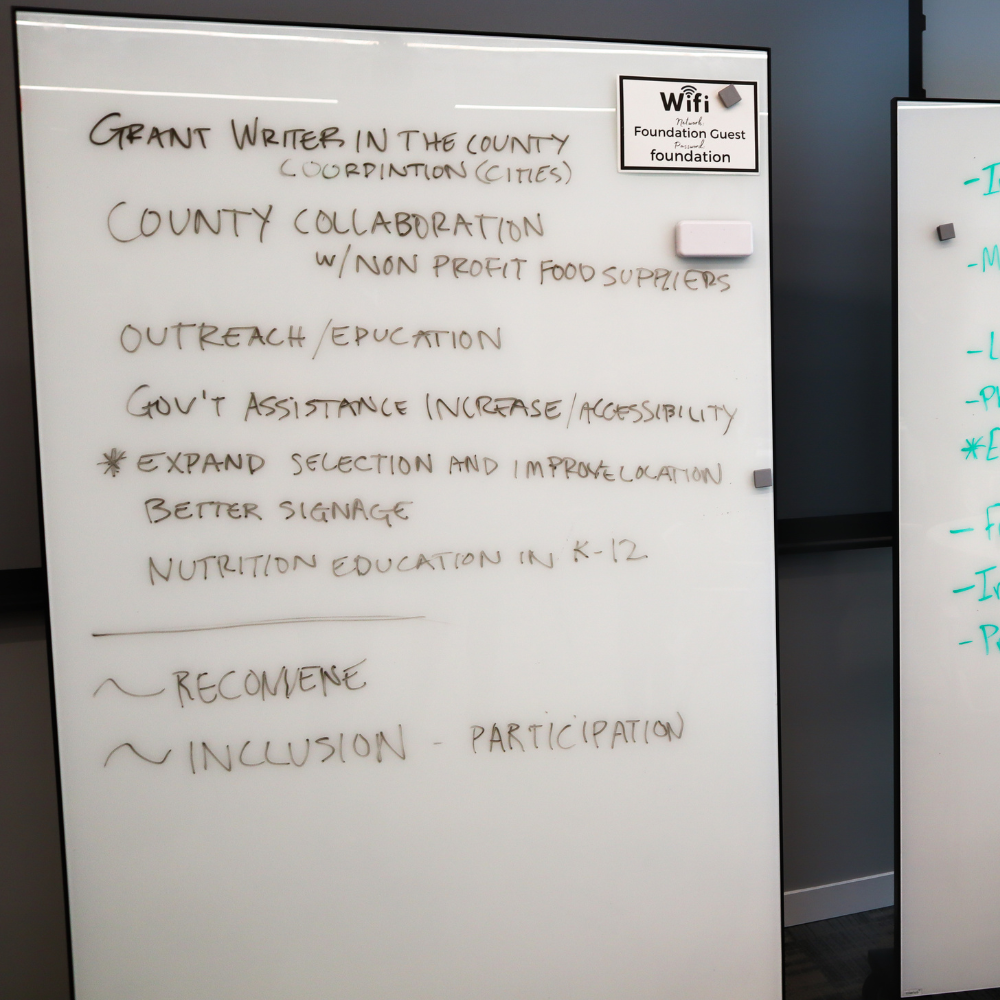 GRANT WRITER IN THE COUNTY
COORDINTION (CITIES)
COUNTY COLLABORATION
W/NON PROFIT FOOD SUPPLIERS
OUTREACH/EDUCATION
GOV'T ASSISTANCE INCREASE/ACCESSIBILITY
* EXPAND SELECTION AND IMPROVE LOCATION
BETTER SIGNAGE
NUTRITION EDUCATION IN K-12
~ RECONVENE
~ INCLUSION - PARTICIPATION
Wifi
Network:
Foundation Guest
Password:
foundation